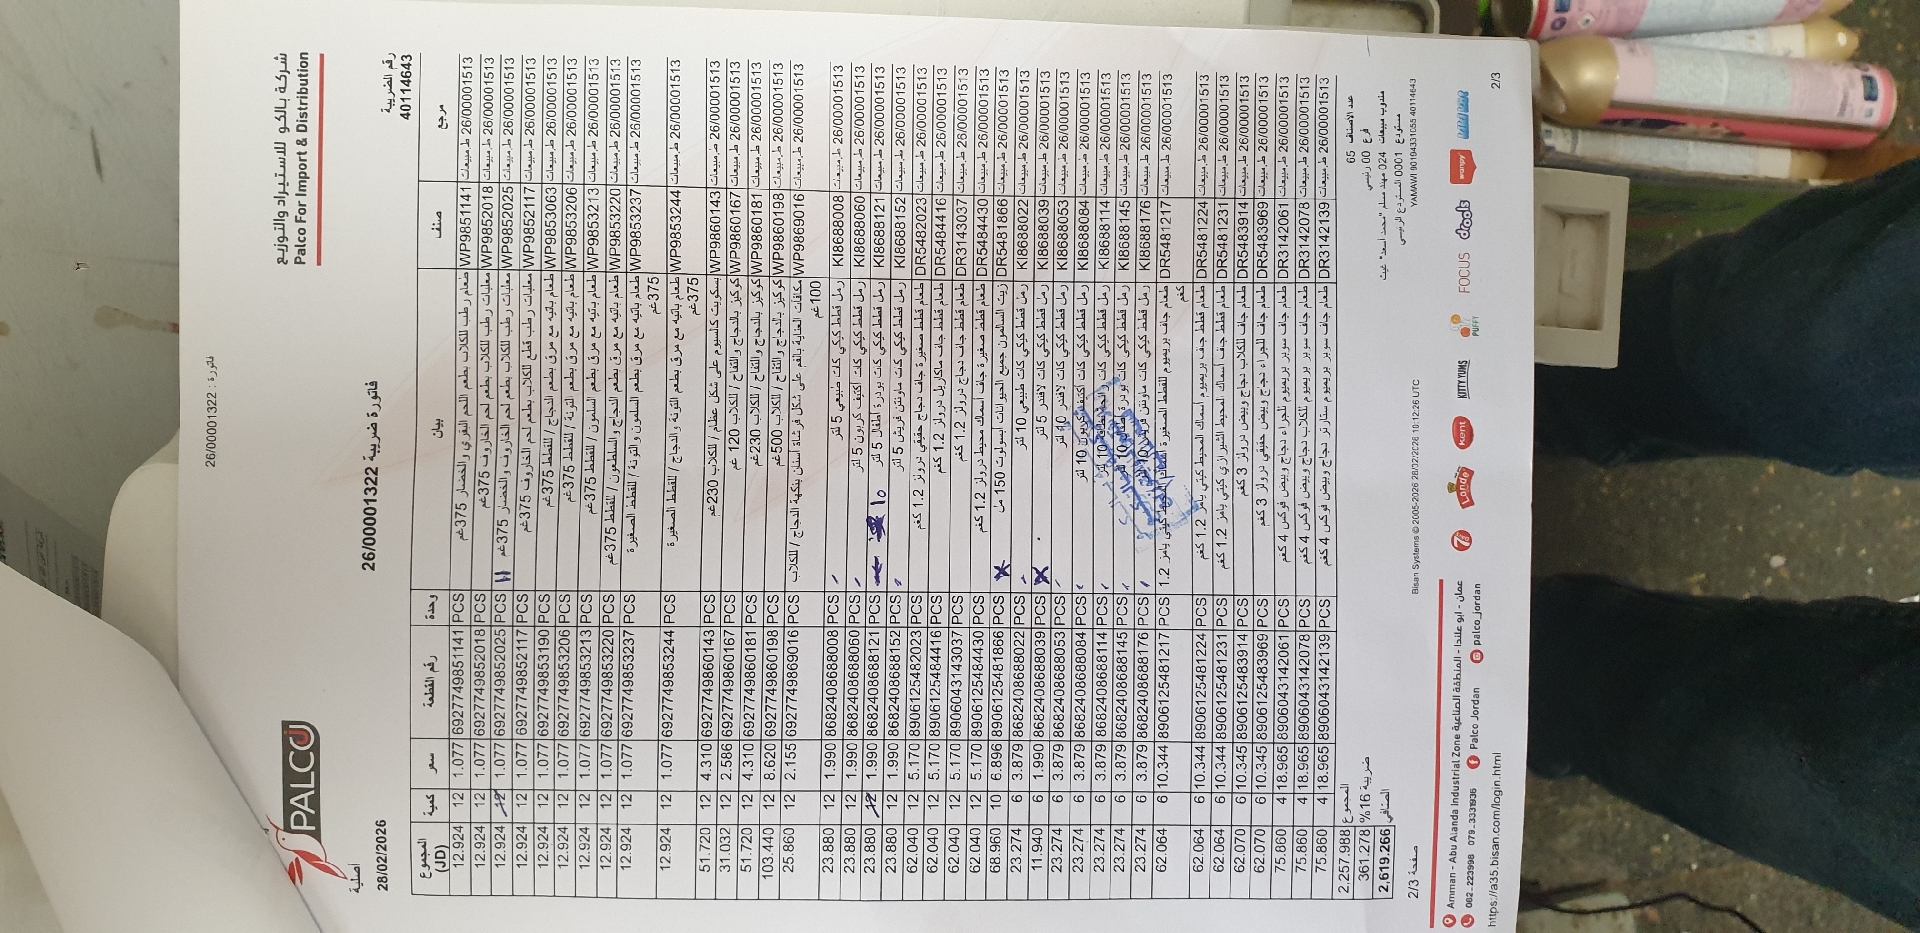 فاتورة : 26/00001322
PALCO
شركة بالكو للاستيراد والتوزيع
Palco For Import & Distribution
اصلية
28/02/2026
فاتورة ضريبية 26/00001322
رقم الضريبة
40114643
المجموع (JD) كمية سعر رقم القطعة وحدة بيان صنف مرجع
12.924 12 1.077 6927749851141 PCS طعام رطب للكلاب بطعم اللحم البقري والخضار 375غم WP9851141 ط.مبيعات 26/00001513
12.924 12 1.077 6927749852018 PCS معلبات رطب للكلاب بطعم لحم الخاروف 375غم WP9852018 ط.مبيعات 26/00001513
12.924 12 1.077 6927749852025 PCS 11 معلبات رطب للكلاب بطعم لحم الخاروف والخضار 375غم WP9852025 ط.مبيعات 26/00001513
12.924 12 1.077 6927749852117 PCS معلبات رطب قطع للكلاب بطعم لحم الخاروف 375غم WP9852117 ط.مبيعات 26/00001513
12.924 12 1.077 6927749853190 PCS طعام باتيه مع مرق بطعم الدجاج / للقطط 375غم WP9853063 ط.مبيعات 26/00001513
12.924 12 1.077 6927749853206 PCS طعام باتيه مع مرق بطعم التونة / للقطط 375غم WP9853206 ط.مبيعات 26/00001513
12.924 12 1.077 6927749853213 PCS طعام باتيه مع مرق بطعم السلمون / للقطط 375غم WP9853213 ط.مبيعات 26/00001513
12.924 12 1.077 6927749853220 PCS طعام باتيه مع مرق بطعم الدجاج و السلطعون / للقطط 375غم WP9853220 ط.مبيعات 26/00001513
12.924 12 1.077 6927749853237 PCS طعام باتيه مع مرق بطعم السلمون و التونة / للقطط الصغيرة 375غم WP9853237 ط.مبيعات 26/00001513
12.924 12 1.077 6927749853244 PCS طعام باتيه مع مرق بطعم التونة و الدجاج / للقطط الصغيرة 375غم WP9853244 ط.مبيعات 26/00001513
51.720 12 4.310 6927749860143 PCS بسكويت كالسيوم على شكل عظام / للكلاب 230غم WP9860143 ط.مبيعات 26/00001513
31.032 12 2.586 6927749860167 PCS كوكيز بالدجاج والتفاح / للكلاب 120 غم WP9860167 ط.مبيعات 26/00001513
51.720 12 4.310 6927749860181 PCS كوكيز بالدجاج والتفاح / للكلاب 230غم WP9860181 ط.مبيعات 26/00001513
103.440 12 8.620 6927749860198 PCS كوكيز بالدجاج والتفاح / للكلاب 500غم WP9860198 ط.مبيعات 26/00001513
25.860 12 2.155 6927749869016 PCS مكافآت العناية بالفم على شكل فرشاة اسنان بنكهة الدجاج / للكلاب 100غم WP9869016 ط.مبيعات 26/00001513
23.880 12 1.990 8682408688008 PCS رمل قطط كيكي كات طبيعي 5 لتر KI8688008 ط.مبيعات 26/00001513
23.880 12 1.990 8682408688060 PCS رمل قطط كيكي كات اكتيف كربون 5 لتر KI8688060 ط.مبيعات 26/00001513
23.880 12 1.990 8682408688121 PCS 10 رمل قطط كيكي كات بودرة اطفال 5 لتر KI8688121 ط.مبيعات 26/00001513
23.880 12 1.990 8682408688152 PCS رمل قطط كيكي كات ماونتن فريش 5 لتر KI8688152 ط.مبيعات 26/00001513
62.040 12 5.170 8906125482023 PCS طعام قطط صغيرة جاف دجاج حقيقي درولز 1.2 كغم DR5482023 ط.مبيعات 26/00001513
62.040 12 5.170 8906125484416 PCS طعام قطط جاف ماكاريل درولز 1.2 كغم DR5484416 ط.مبيعات 26/00001513
62.040 12 5.170 8906043143037 PCS طعام قطط جاف دجاج درولز 1.2 كغم DR3143037 ط.مبيعات 26/00001513
62.040 12 5.170 8906125484430 PCS طعام قطط صغيرة جاف أسماك محيط درولز 1.2 كغم DR5484430 ط.مبيعات 26/00001513
68.960 10 6.896 8906125481866 PCS زيت السالمون جميع الحيوانات ابسولوت 150 مل DR5481866 ط.مبيعات 26/00001513
23.274 6 3.879 8682408688022 PCS رمل قطط كيكي كات طبيعي 10 لتر KI8688022 ط.مبيعات 26/00001513
11.940 6 1.990 8682408688039 PCS رمل قطط كيكي كات لافندر 5 لتر KI8688039 ط.مبيعات 26/00001513
23.274 6 3.879 8682408688053 PCS رمل قطط كيكي كات لافندر 10 لتر KI8688053 ط.مبيعات 26/00001513
23.274 6 3.879 8682408688084 PCS رمل قطط كيكي كات اكتيف كربون 10 لتر KI8688084 ط.مبيعات 26/00001513
23.274 6 3.879 8682408688114 PCS رمل قطط كيكي كات 10 لتر KI8688114 ط.مبيعات 26/00001513
23.274 6 3.879 8682408688145 PCS رمل قطط كيكي كات بودرة 10 لتر KI8688145 ط.مبيعات 26/00001513
23.274 6 3.879 8682408688176 PCS رمل قطط كيكي كات ماونتن فريش 10 لتر KI8688176 ط.مبيعات 26/00001513
62.064 6 10.344 8906125481217 PCS طعام جاف بريميوم للقطط الصغيرة كيتي يامز 1.2 كغم DR5481217 ط.مبيعات 26/00001513
62.064 6 10.344 8906125481224 PCS طعام قطط جاف بريميوم أسماك المحيط كيتي يامز 1.2 كغم DR5481224 ط.مبيعات 26/00001513
62.064 6 10.344 8906125481231 PCS طعام قطط جاف أسماك المحيط الشيرازي كيتي يامز 1.2 كغم DR5481231 ط.مبيعات 26/00001513
62.070 6 10.345 8906125483914 PCS طعام جاف للكلاب دجاج وبيض درولز 3 كغم DR5483914 ط.مبيعات 26/00001513
62.070 6 10.345 8906125483969 PCS طعام جاف للجراء دجاج وبيض حقيقي درولز 3 كغم DR5483969 ط.مبيعات 26/00001513
75.860 4 18.965 8906043142061 PCS طعام جاف سوبر بريميوم للجراء دجاج وبيض فوكس 4 كغم DR3142061 ط.مبيعات 26/00001513
75.860 4 18.965 8906043142078 PCS طعام جاف سوبر بريميوم للكلاب دجاج وبيض فوكس 4 كغم DR3142078 ط.مبيعات 26/00001513
75.860 4 18.965 8906043142139 PCS طعام جاف سوبر بريميوم ستارتر دجاج وبيض فوكس 4 كغم DR3142139 ط.مبيعات 26/00001513
2,257.988 المجموع
361.278 ضريبة 16%
2,619.266 الصافي
عدد الاصناف 65
فرع 00 رئيسي
مندوب مبيعات 024 مهند مسلم "محمد اسعد" غيث
مستودع 0001 المستودع الرئيسي
صفحة 2/3
Bisan Systems © 2005-2026 28/02/2026 10:12:26 UTC
YAMAWI 90194331055 40114643
Londo
Kent
KITTY YUMS
PUFFY
FOCUS
drools
wanpy
Amman - Abu Alanda Industrial Zone عمان - ابو علندا - المنطقة الصناعية
062-223998 079-3331936 Palco Jordan palco_jordan
https://a35.bisan.com/login.html
2/3